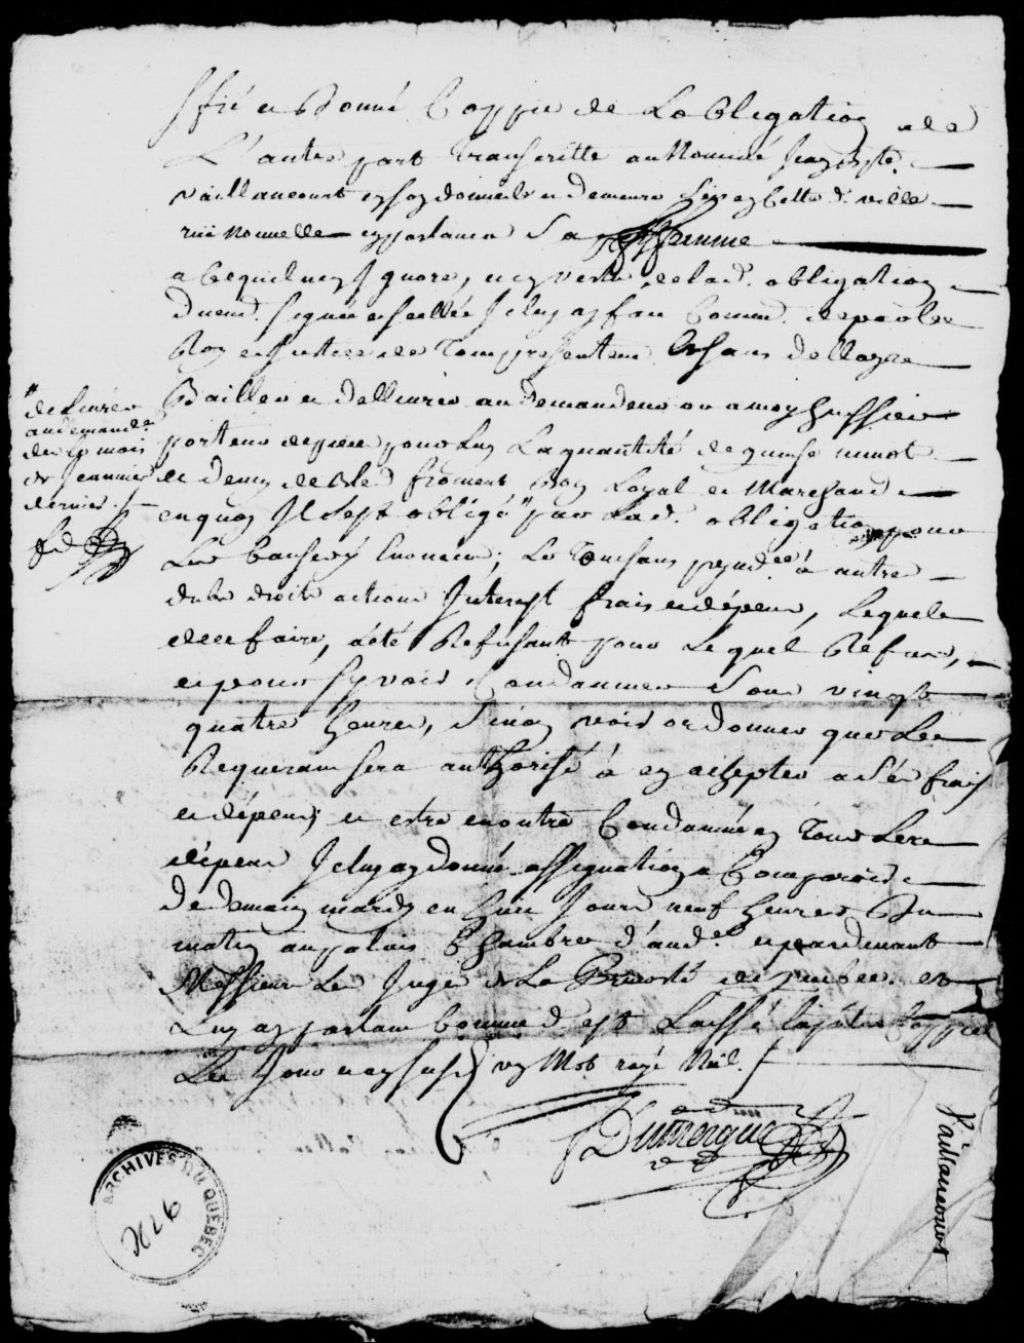 fié et donné Coppie de Lobligation de
L'autre part transcritte au nommé Jean
vaillancourt en son domicile et demeure size en cette d. ville
rüe nouvelle en parlant a sa femme
a ce quil nen Ignore, et en vertu de lad. obligation
dument signée et scellée Je luy ay fait Comm. de par le
Roy et Justice de tout presentement Et sans dellay
Bailler et dellivrer au demandeur ou a moy huissier
porteur de piece pour luy La quantité de quinze minots
et demy de bled froment bon Loyal et Marchand
en quoy Il s'est obligé " par Lad. obligation pour
Les Causes y Enoncée, Le tout sans prejud.ce a autres
dubs droits actions Interest frais et dépens, Lequel
de ce faire, a été Refusant pour Lequel Refus,
et pour s'y voir Condamner dans vingt
quatre heures, sinon voir ordonner que Le
Requerant sera authorisé a en achepter a ses frais
et dépens et estre en outre Condamné en tous Les
dépens Je luy ay donné assignation a Comparoir
de demain mardy en huit Jours neuf heures du
matin au palais Chambre d'aud.ce et pardevant
Messieurs Le Juge de La Prevosté de quebec et
Luy ay parlant comme d. est Laissé la présente Coppie
Les Jour et an susd. un Mot rayé Nul.
Dumergue
" de livrer
au demand.
du mois
de Janvier
dernier
Vaillancourt
ARCHIVES DU QUÉBEC